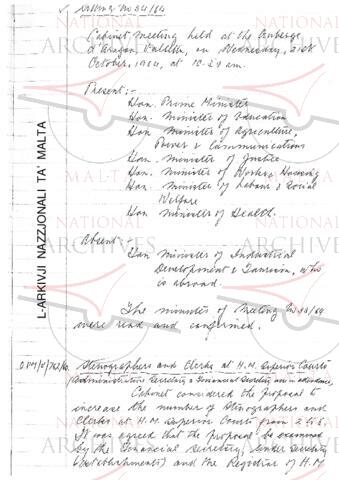 Cabinet meeting held at the Auberge
d'Aragon, Valletta, on Wednesday, 21st
October, 1964, at 10.30 a.m.
Present:-
Hon. Prime Minister
Hon. Minister of Education
Hon. Minister of Agriculture,
Power & Communications
Hon. Minister of Justice
Hon. Minister of Works & Housing
Hon. Minister of Labour & Social
Welfare
Hon. Minister of Health.
Absent:-
Hon Minister of Industrial
Development & Tourism, who
is abroad.
The minutes of Meeting No
were read and confirmed.
Stenographers and Clerks at H.M. Superior Courts
(Administrative Secretary & Financial Secretary are in attendance)
Cabinet considered the proposal to
increase the number of Stenographers and
Clerks at H.M. Superior Courts from
It was agreed that the proposal be examined
by the Financial Secretary, Under Secretary
(Establishments) and the Registrar of H.M
L-ARKIVJI NAZZJONALI TA' MALTA
NATIONAL
ARCHIVES
MALTA